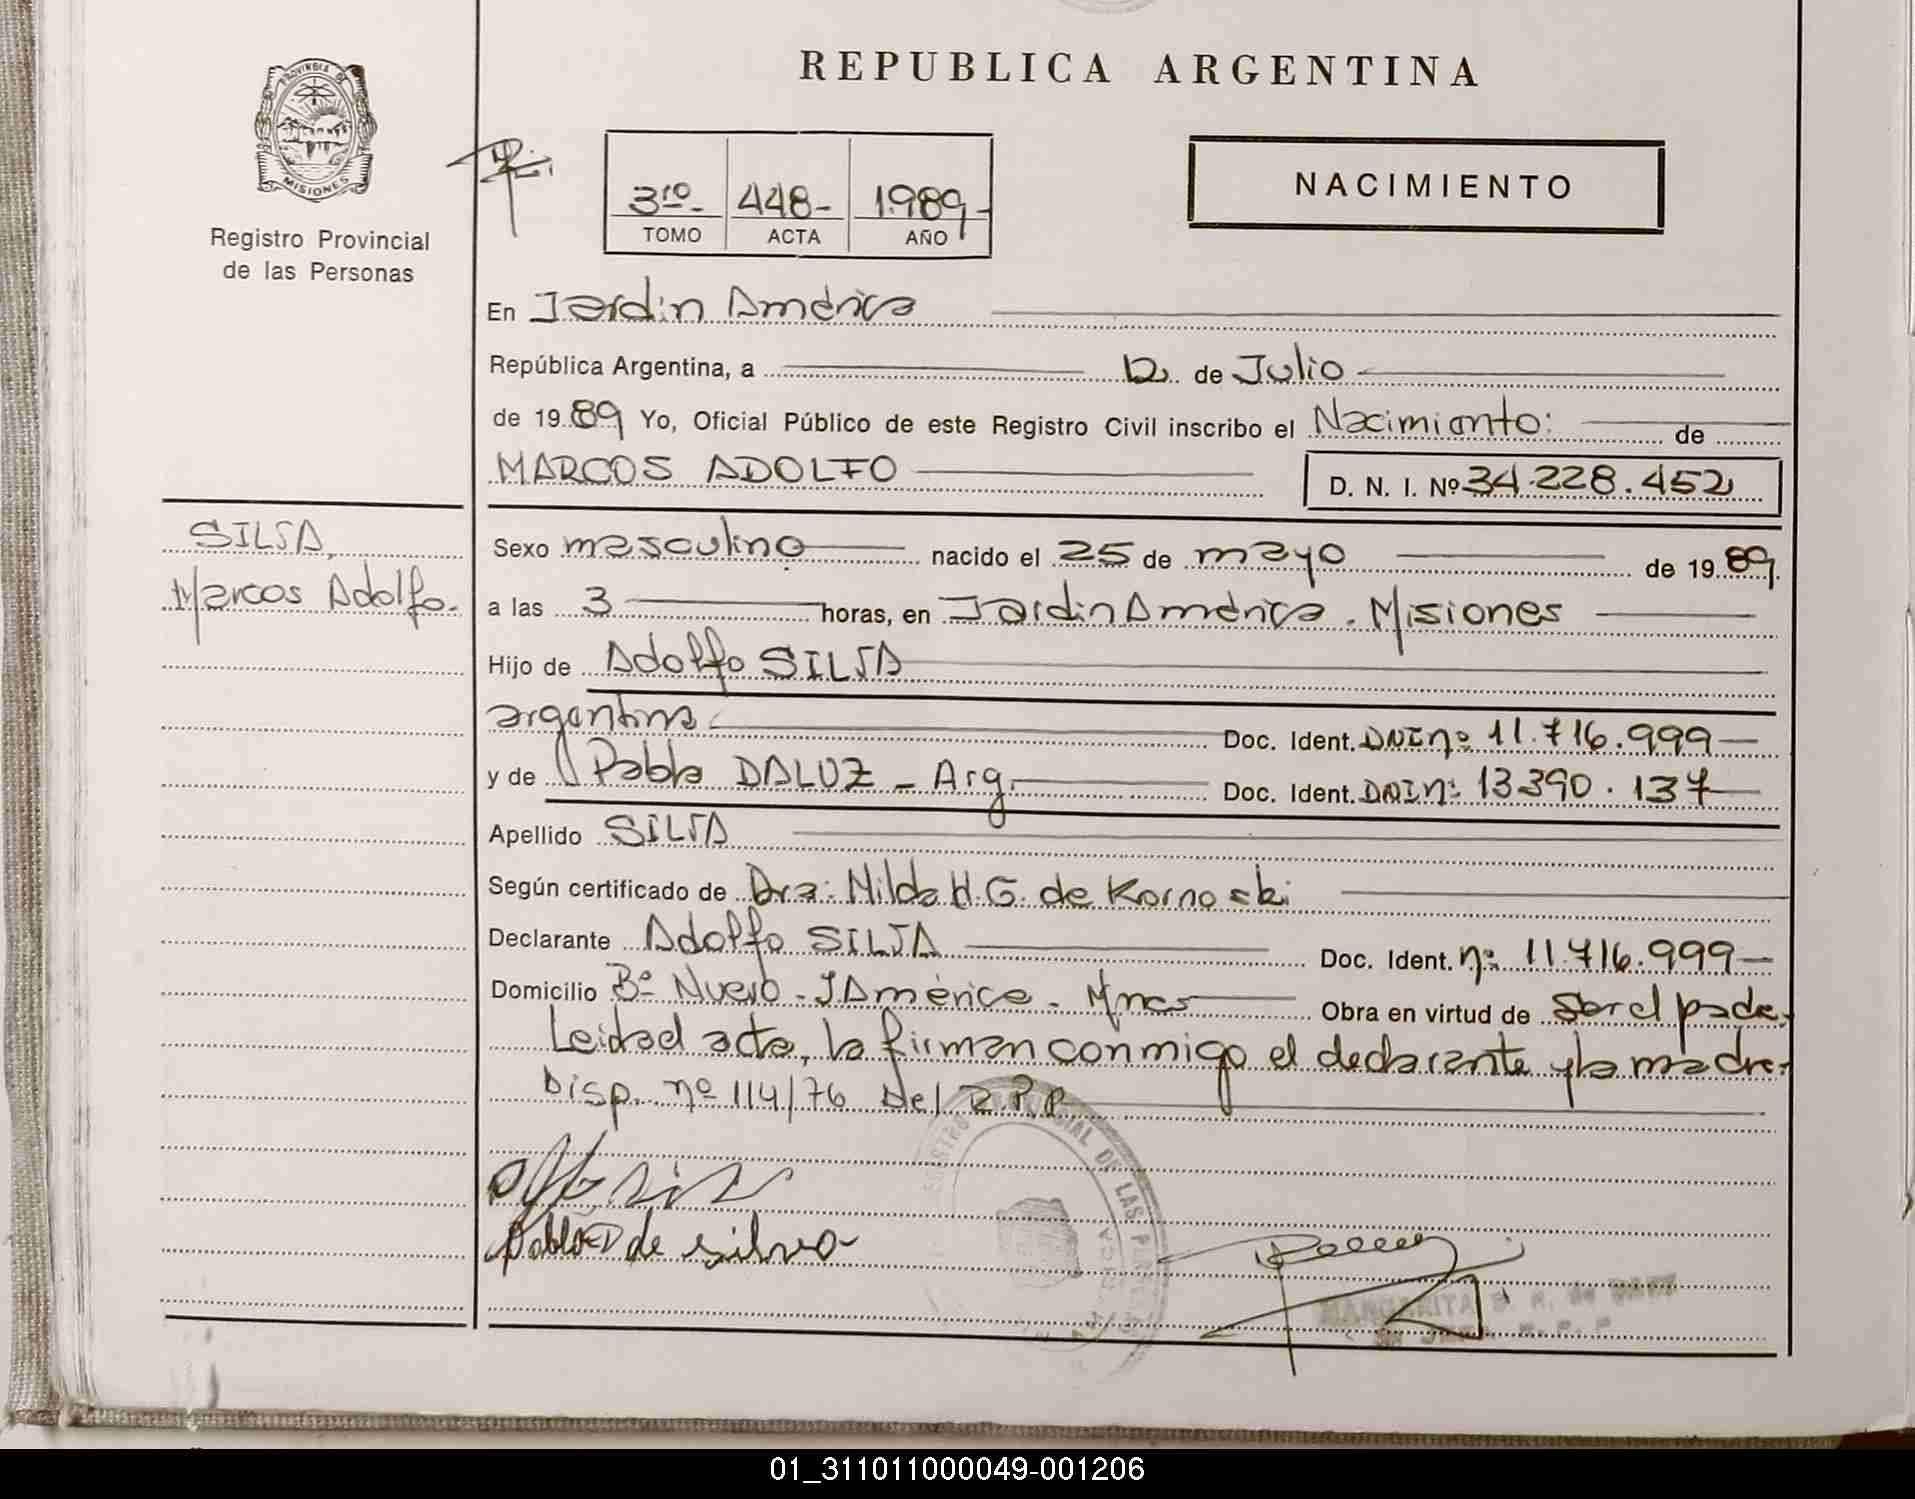 REPUBLICA ARGENTINA
PROVINCIA DE
MISIONES
Registro Provincial
de las Personas
3ro- 448- 1989-
TOMO ACTA AÑO
NACIMIENTO
En Jardin América
República Argentina, a 12 de Julio
de 1989 Yo, Oficial Público de este Registro Civil inscribo el Nacimianto: de
MARCOS ADOLFO
D. N. I. Nº 34.228.452
SILVA,
Marcos Adolfo.
Sexo masculino nacido el 25 de mayo de 1989
a las 3 horas, en Jardin América. Misiones
Hijo de Adolfo SILVA
argentina Doc. Ident. DNI nº 11.716.999
y de Pabla DALUZ - Arg. Doc. Ident. DNI nº 13.390.137
Apellido SILVA
Según certificado de Dra: Nilda H. G. de Kornoski
Declarante Adolfo SILVA Doc. Ident. nº 11.716.999
Domicilio Bº Nuevo - J América - Mnes Obra en virtud de ser el padre.
Leida el acta, la firman conmigo el declarante y la madre.
Disp. nº 114/76 Del R.P.P.
Pabla D de silva
REGISTRO PROVINCIAL DE LAS PERSONAS
MARGARITA
01_311011000049-001206